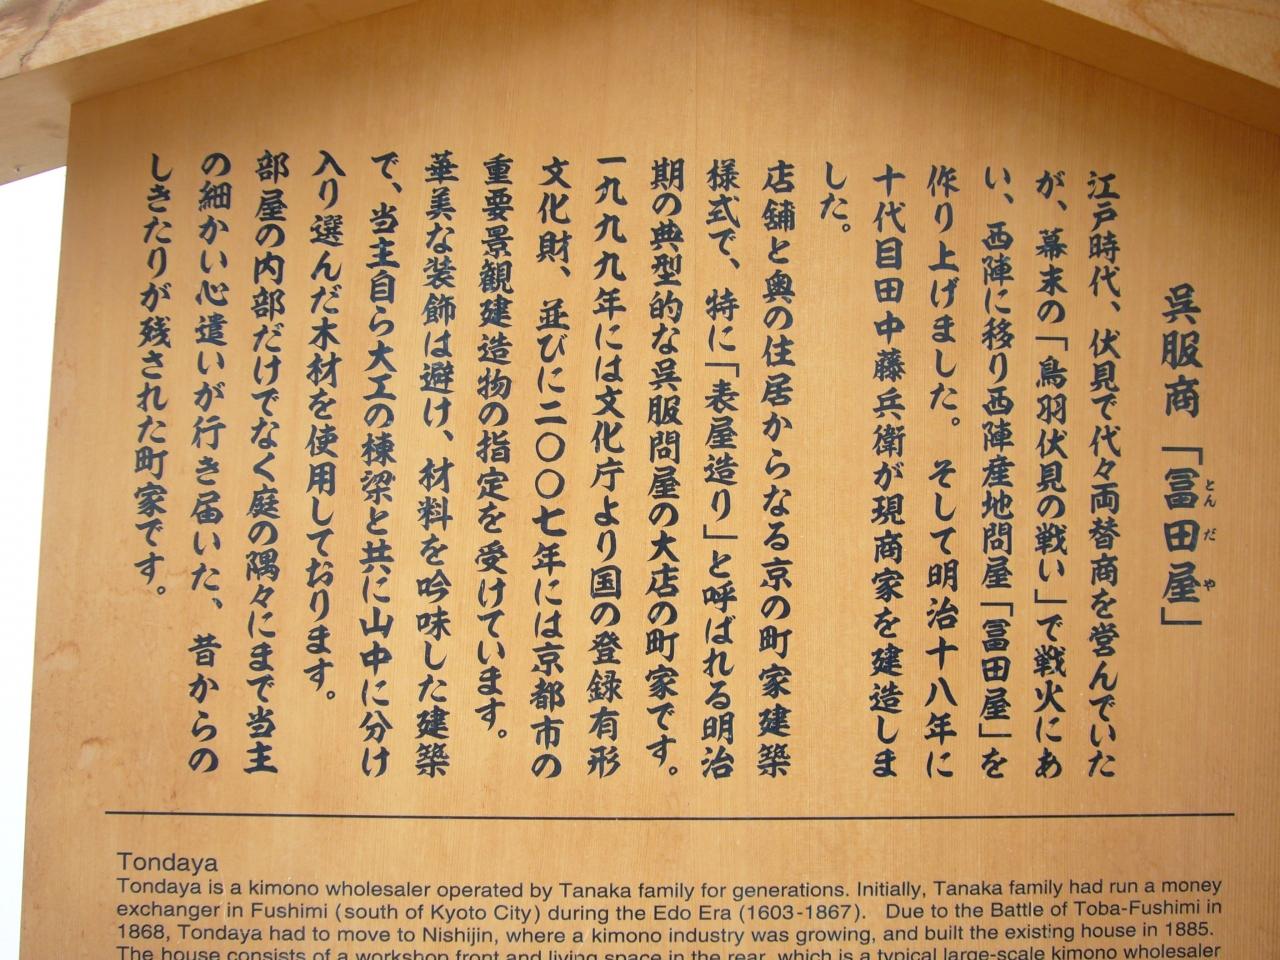 呉服商「冨田屋」
とんだや
江戸時代、伏見で代々両替商を営んでいた
が、幕末の「鳥羽伏見の戦い」で戦火にあ
い、西陣に移り西陣産地問屋「冨田屋」を
作り上げました。そして明治十八年に
十代目田中藤兵衛が現商家を建造しま
した。
店舗と奥の住居からなる京の町家建築
様式で、特に「表屋造り」と呼ばれる明治
期の典型的な呉服問屋の大店の町家です。
一九九九年には文化庁より国の登録有形
文化財、並びに二〇〇七年には京都市の
重要景観建造物の指定を受けています。
華美な装飾は避け、材料を吟味した建築
で、当主自ら大工の棟梁と共に山中に分け
入り選んだ木材を使用しております。
部屋の内部だけでなく庭の隅々にまで当主
の細かい心遣いが行き届いた、昔からの
しきたりが残された町家です。
Tondaya
Tondaya is a kimono wholesaler operated by Tanaka family for generations. Initially, Tanaka family had run a money
exchanger in Fushimi (south of Kyoto City) during the Edo Era (1603-1867). Due to the Battle of Toba-Fushimi in
1868, Tondaya had to move to Nishijin, where a kimono industry was growing, and built the existing house in 1885.
The house consists of a workshop front and living space in the rear, which is a typical large-scale kimono wholesaler